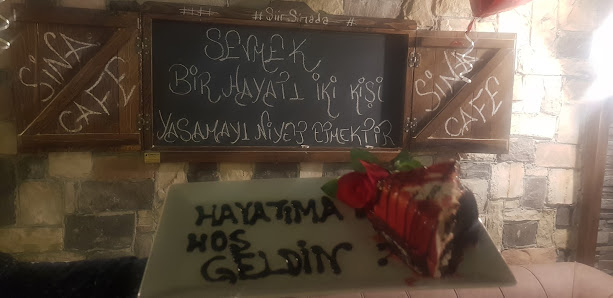 #Şiir Sinada #
SİNA
CAFE
SEVMEK
BİR HAYATI İKİ KİŞİ
YAŞAMAYI NİYET ETMEKTİR
SİNA
CAFE
HAYATIMA
HOŞ
GELDİN